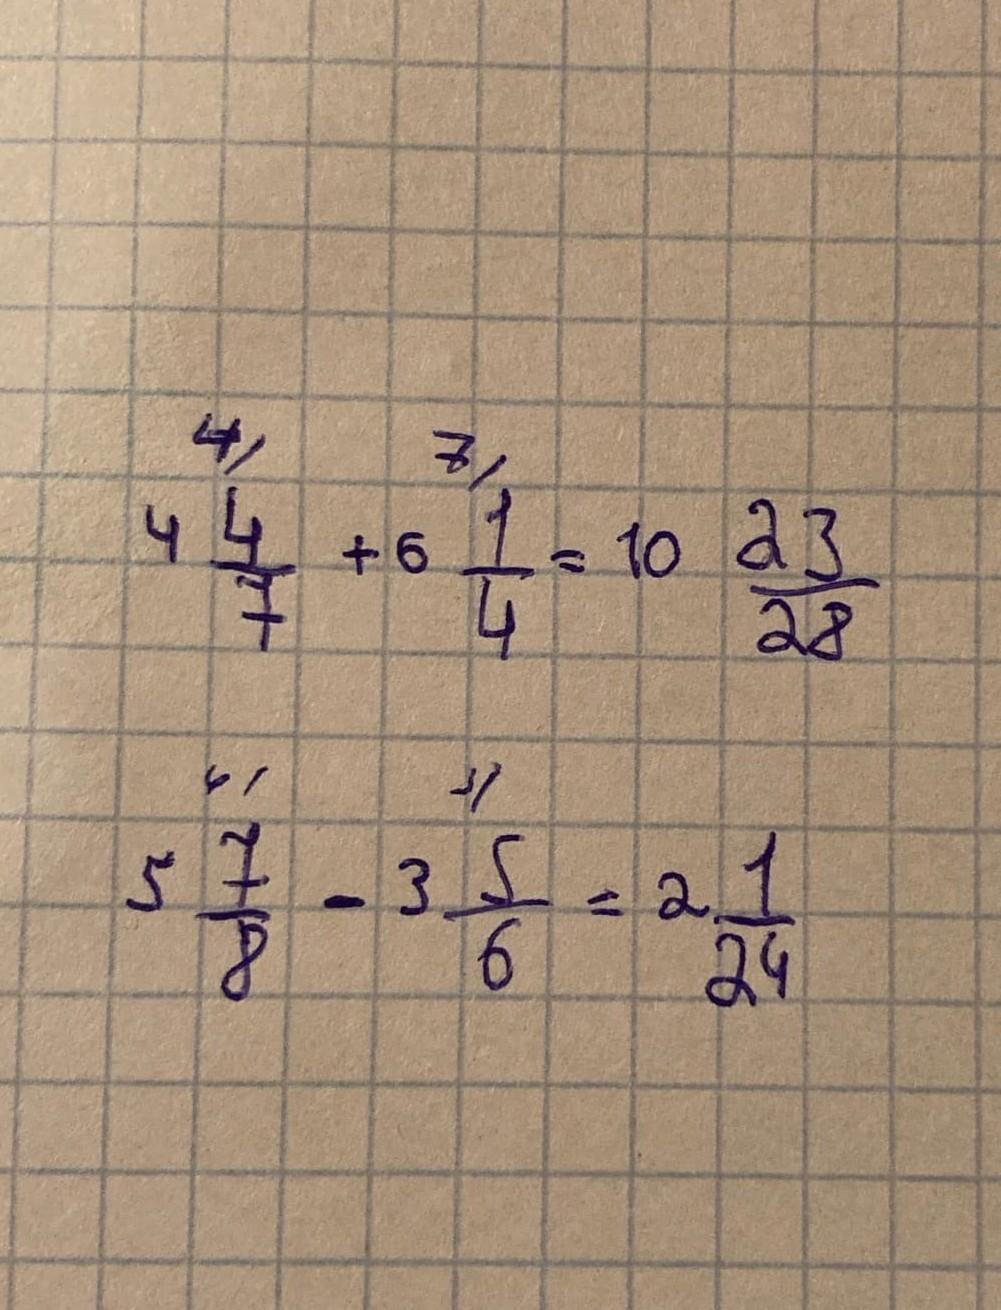 4/ 7/
4 4/7 + 6 1/4 = 10 23/28
5 7/8 - 3 5/6 = 2 1/24